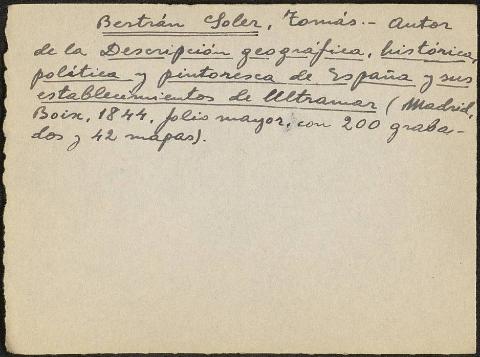 Bertrán Soler, Tomás.- Autor
de la Descripción geográfica, histórica,
política y pintoresca de España y sus
establecimientos de Ultramar (Madrid,
Boix, 1844, folio mayor, con 200 graba-
dos y 42 mapas).